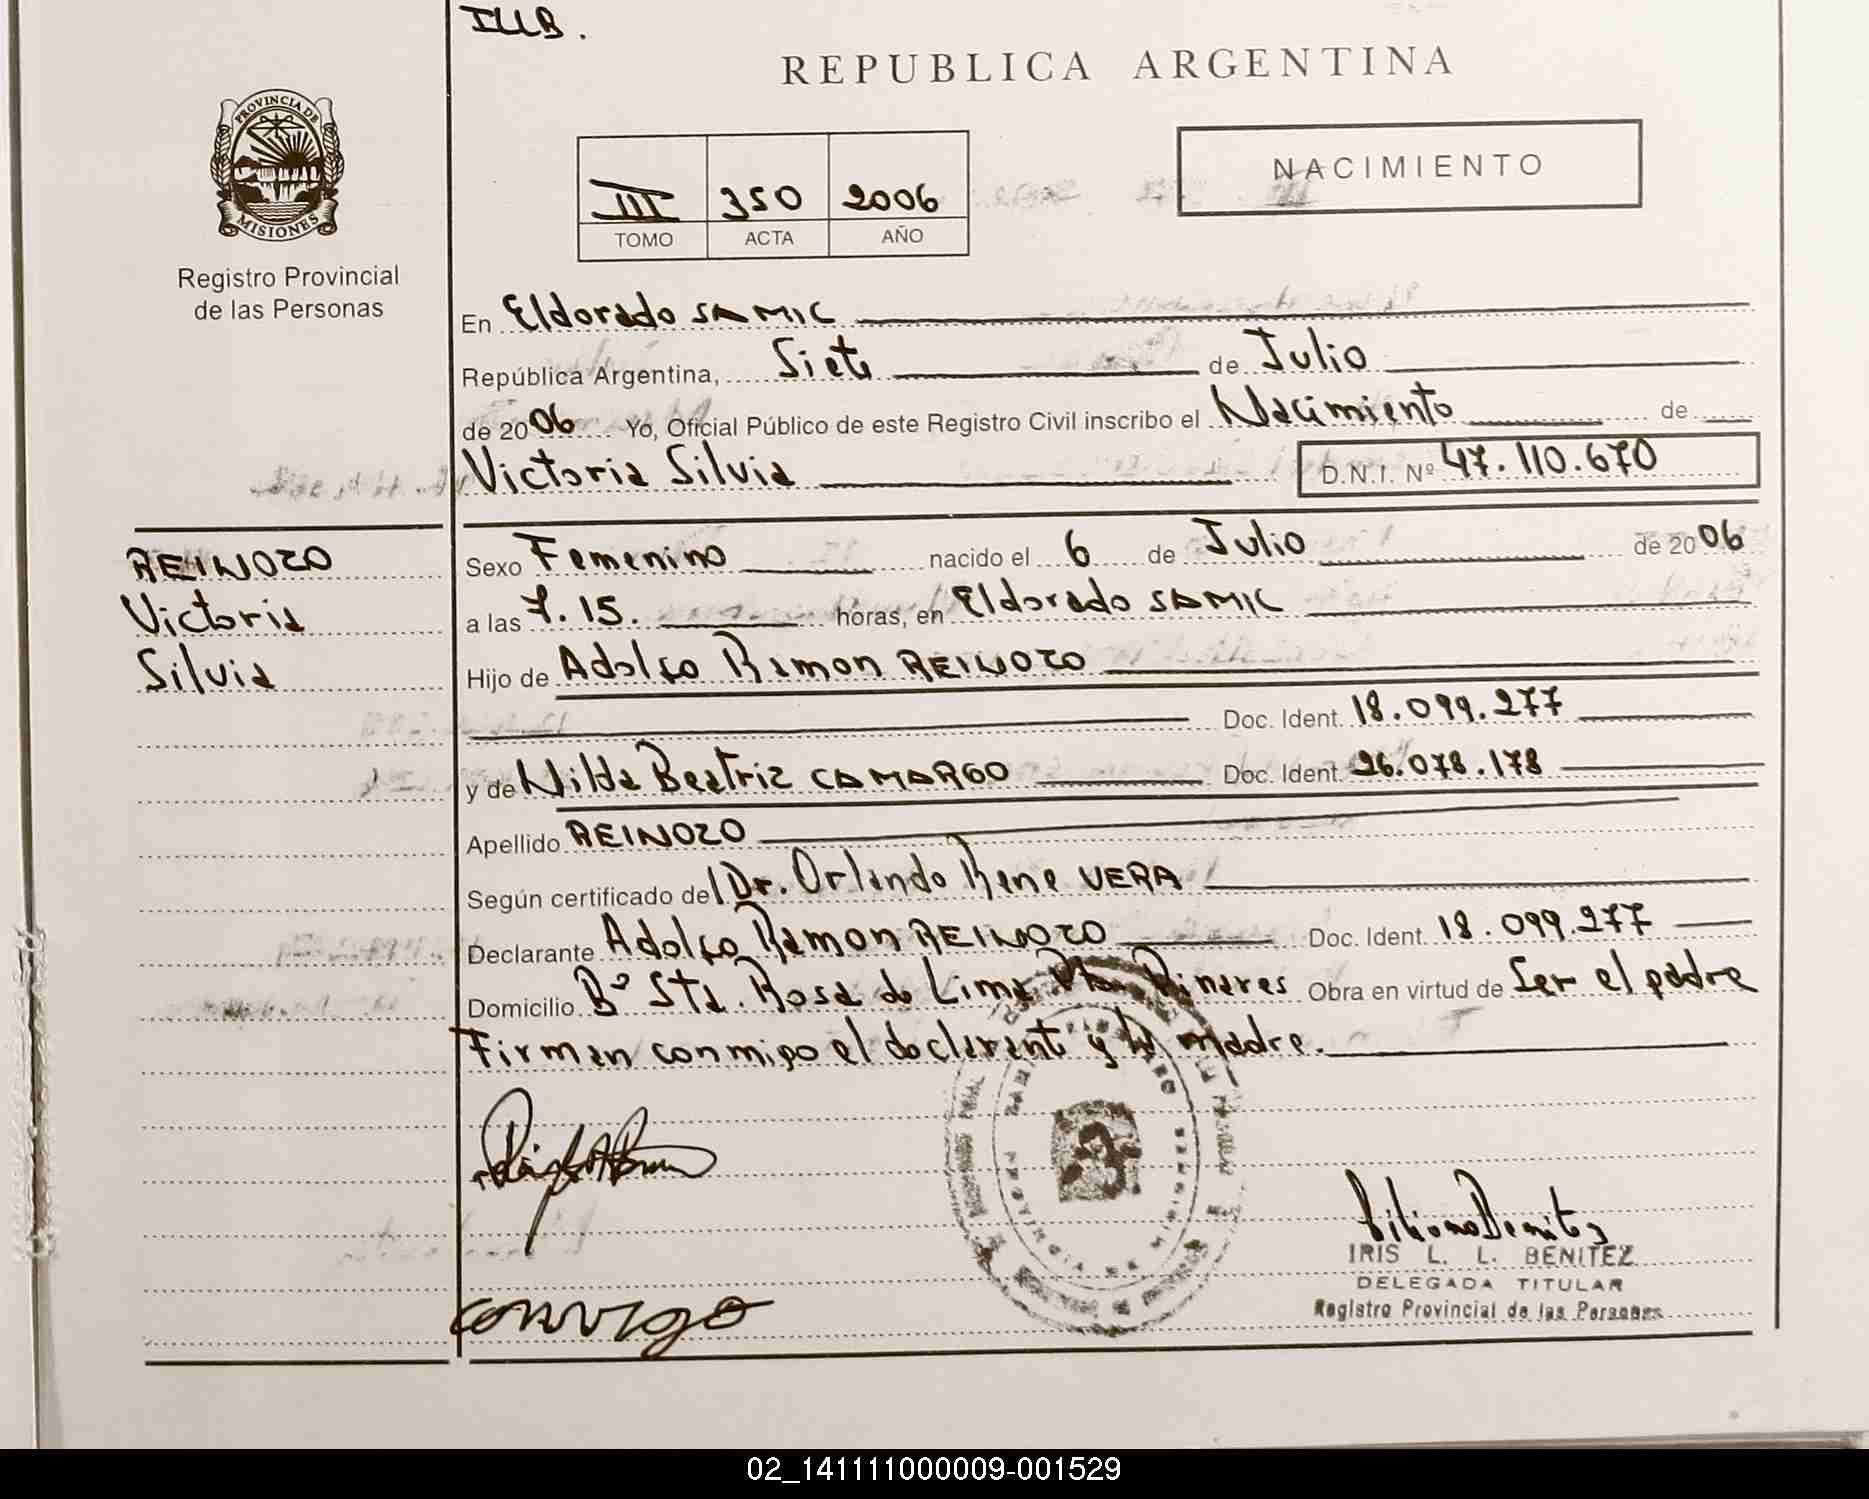 ILLB.
REPUBLICA ARGENTINA
PROVINCIA DE
MISIONES
Registro Provincial
de las Personas
III 350 2006
TOMO ACTA AÑO
NACIMIENTO
En Eldorado SAMIC
República Argentina, Siete de Julio
de 2006 Yo, Oficial Público de este Registro Civil inscribo el Nacimiento de
Victoria Silvia D.N.I. Nº 47.110.670
REINOZO
Victoria
Silvia
Sexo Femenino nacido el 6 de Julio de 2006
a las 7.15. horas, en Eldorado SAMIC
Hijo de Adolfo Ramon REINOZO
Doc. Ident. 18.099.277
y de Nilda Beatriz CAMARGO Doc. Ident. 26.078.178
Apellido REINOZO
Según certificado del Dr. Orlando Rene VERA
Declarante Adolfo Ramon REINOZO Doc. Ident. 18.099.277
Domicilio Bº Sta. Rosa de Lima Pinares Obra en virtud de Ser el padre
Firman conmigo el declarante y la madre.
IRIS L. L. BENITEZ
DELEGADA TITULAR
Registro Provincial de las Personas
02_141111000009-001529